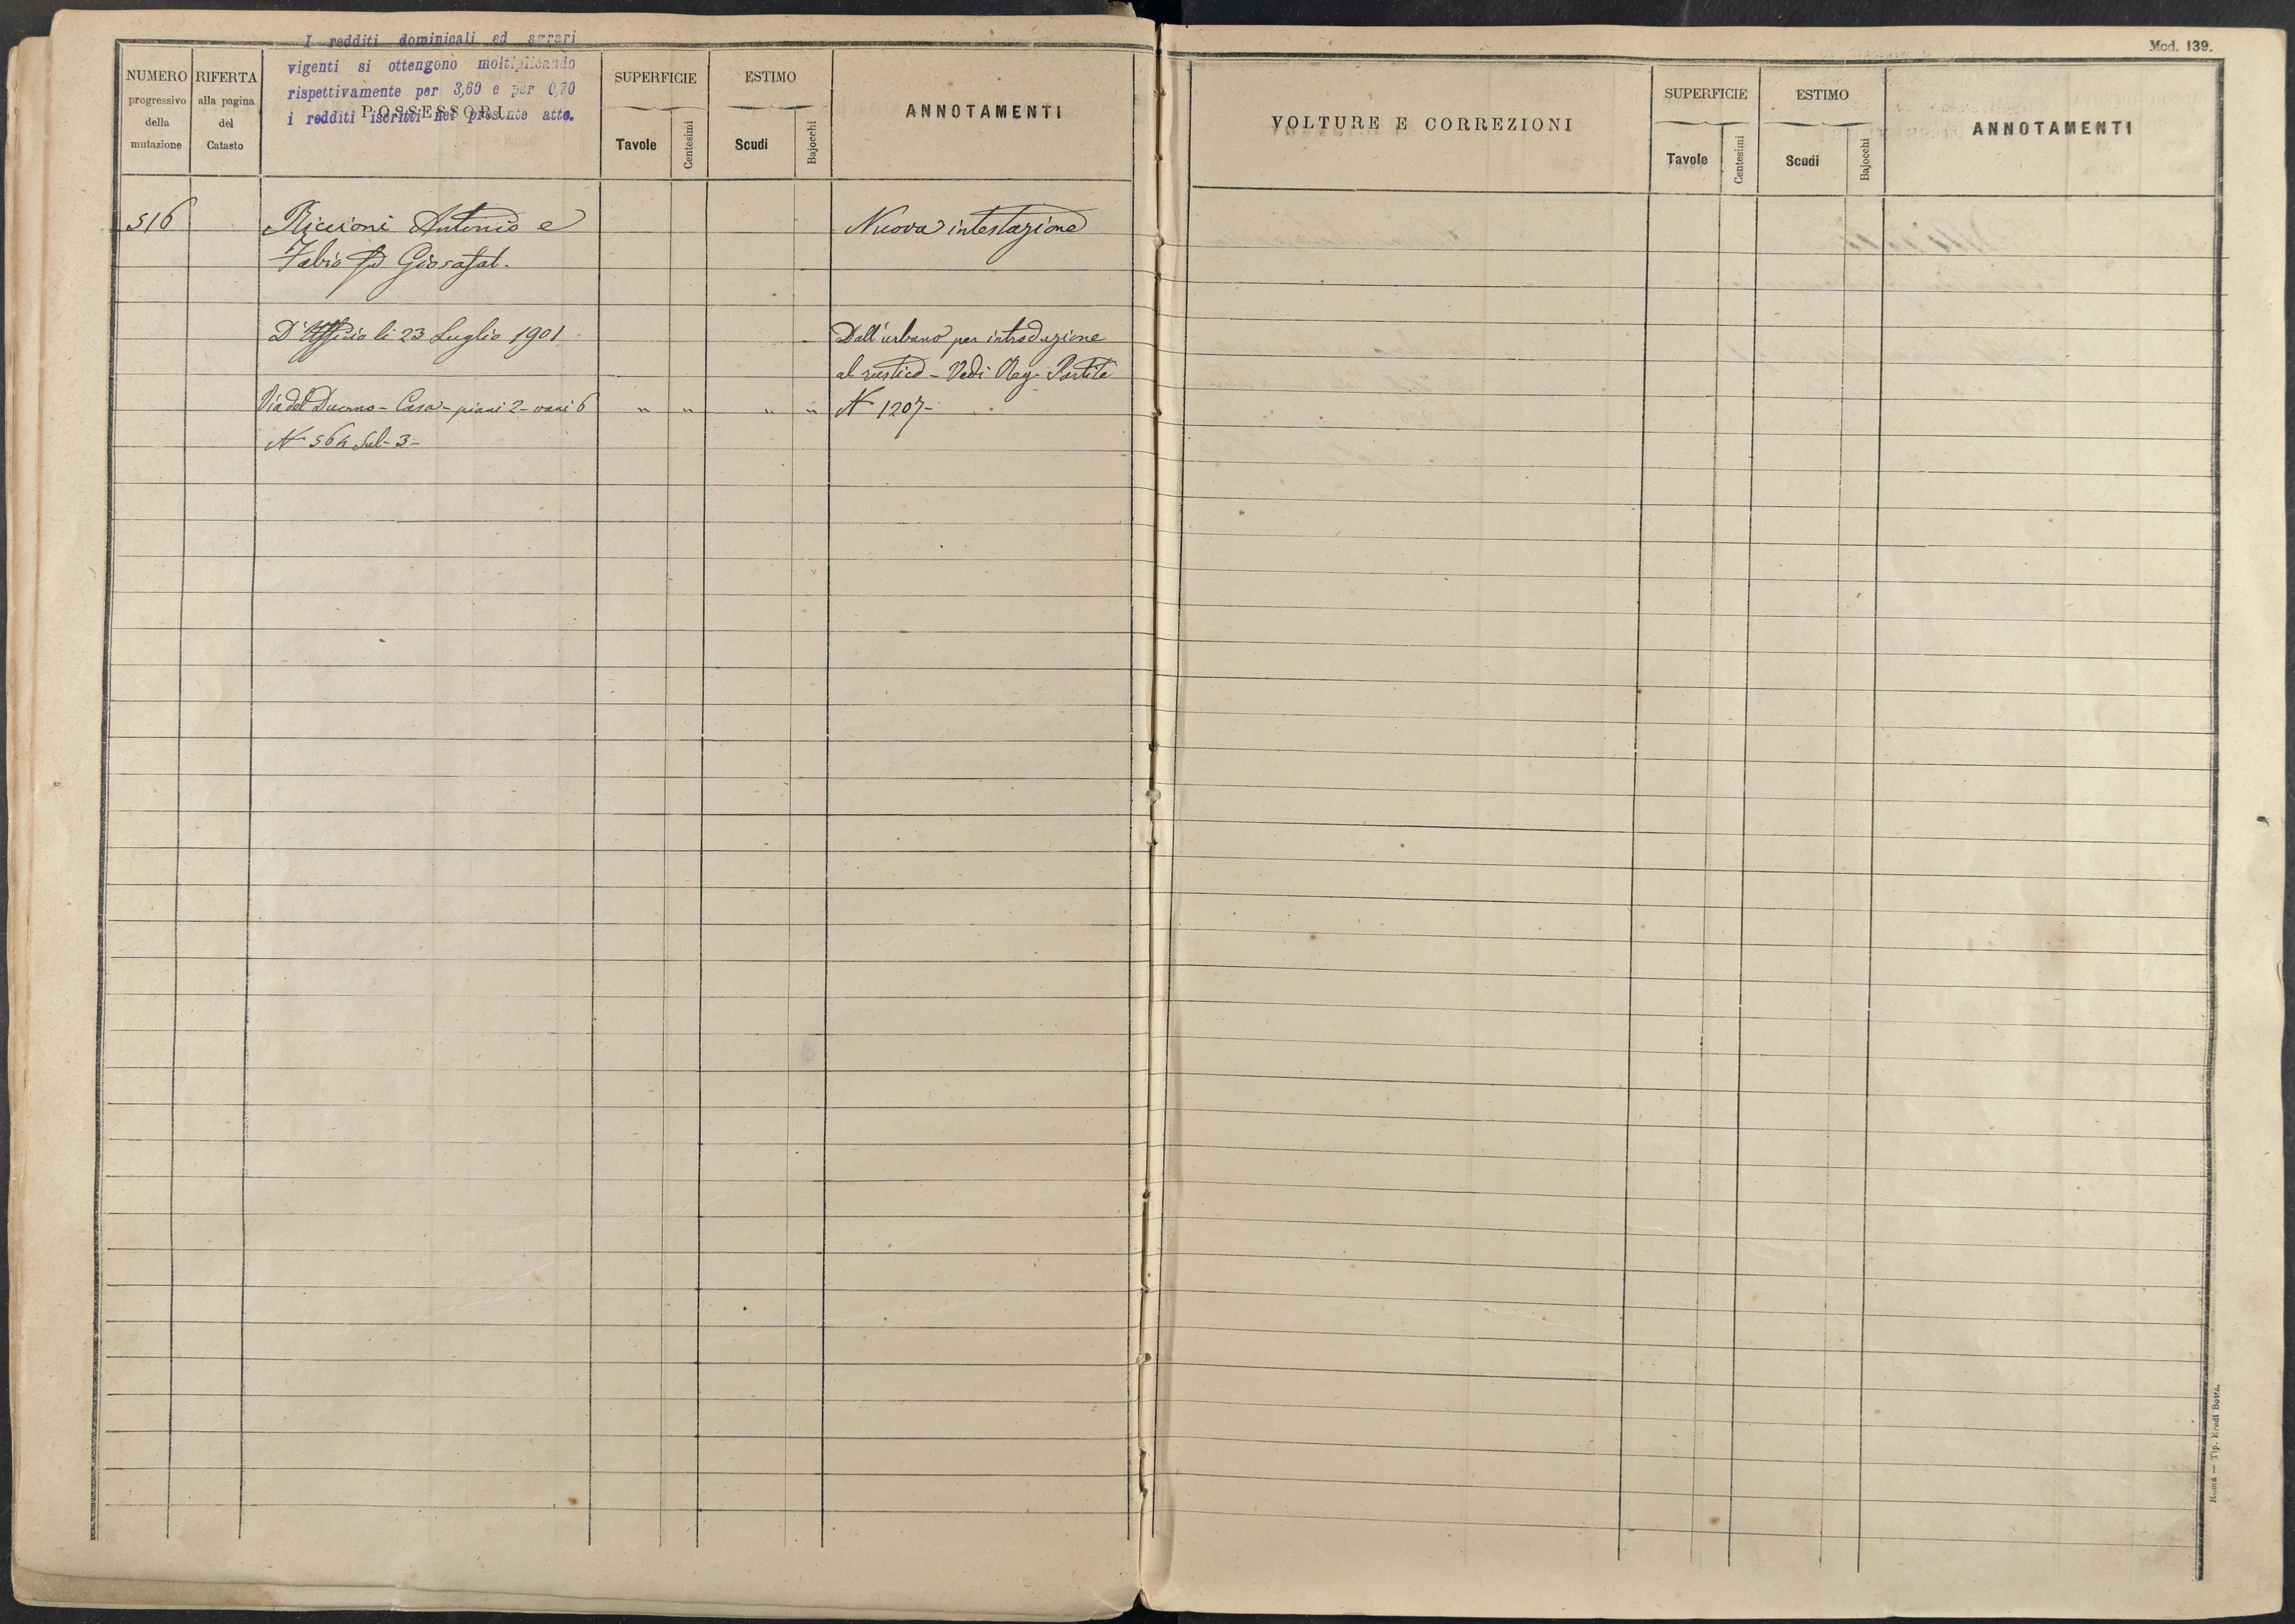 I redditi dominicali ed agrari
vigenti si ottengono moltiplicando
rispettivamente per 3,60 e per 0,70
i redditi iscritti nel presente atto.
NUMERO progressivo della mutazione
RIFERTA alla pagina del Catasto
POSSESSORI
SUPERFICIE
Tavole Centesimi
ESTIMO
Scudi Bajocchi
ANNOTAMENTI
516 Riccioni Antonio e Nuova intestazione
Fabio fu Giosafat.
D'Ufficio li 23 Luglio 1901. Dall'urbano per introduzione
al rustico - Vedi Reg. Partite
Via del Duomo - Casa - piani 2 - vani 6 " " " " N 1207-
N 564 Sub- 3-
Mod. 139.
VOLTURE E CORREZIONI
SUPERFICIE
Tavole Centesimi
ESTIMO
Scudi Bajocchi
ANNOTAMENTI
Roma — Tip. Eredi Botta.